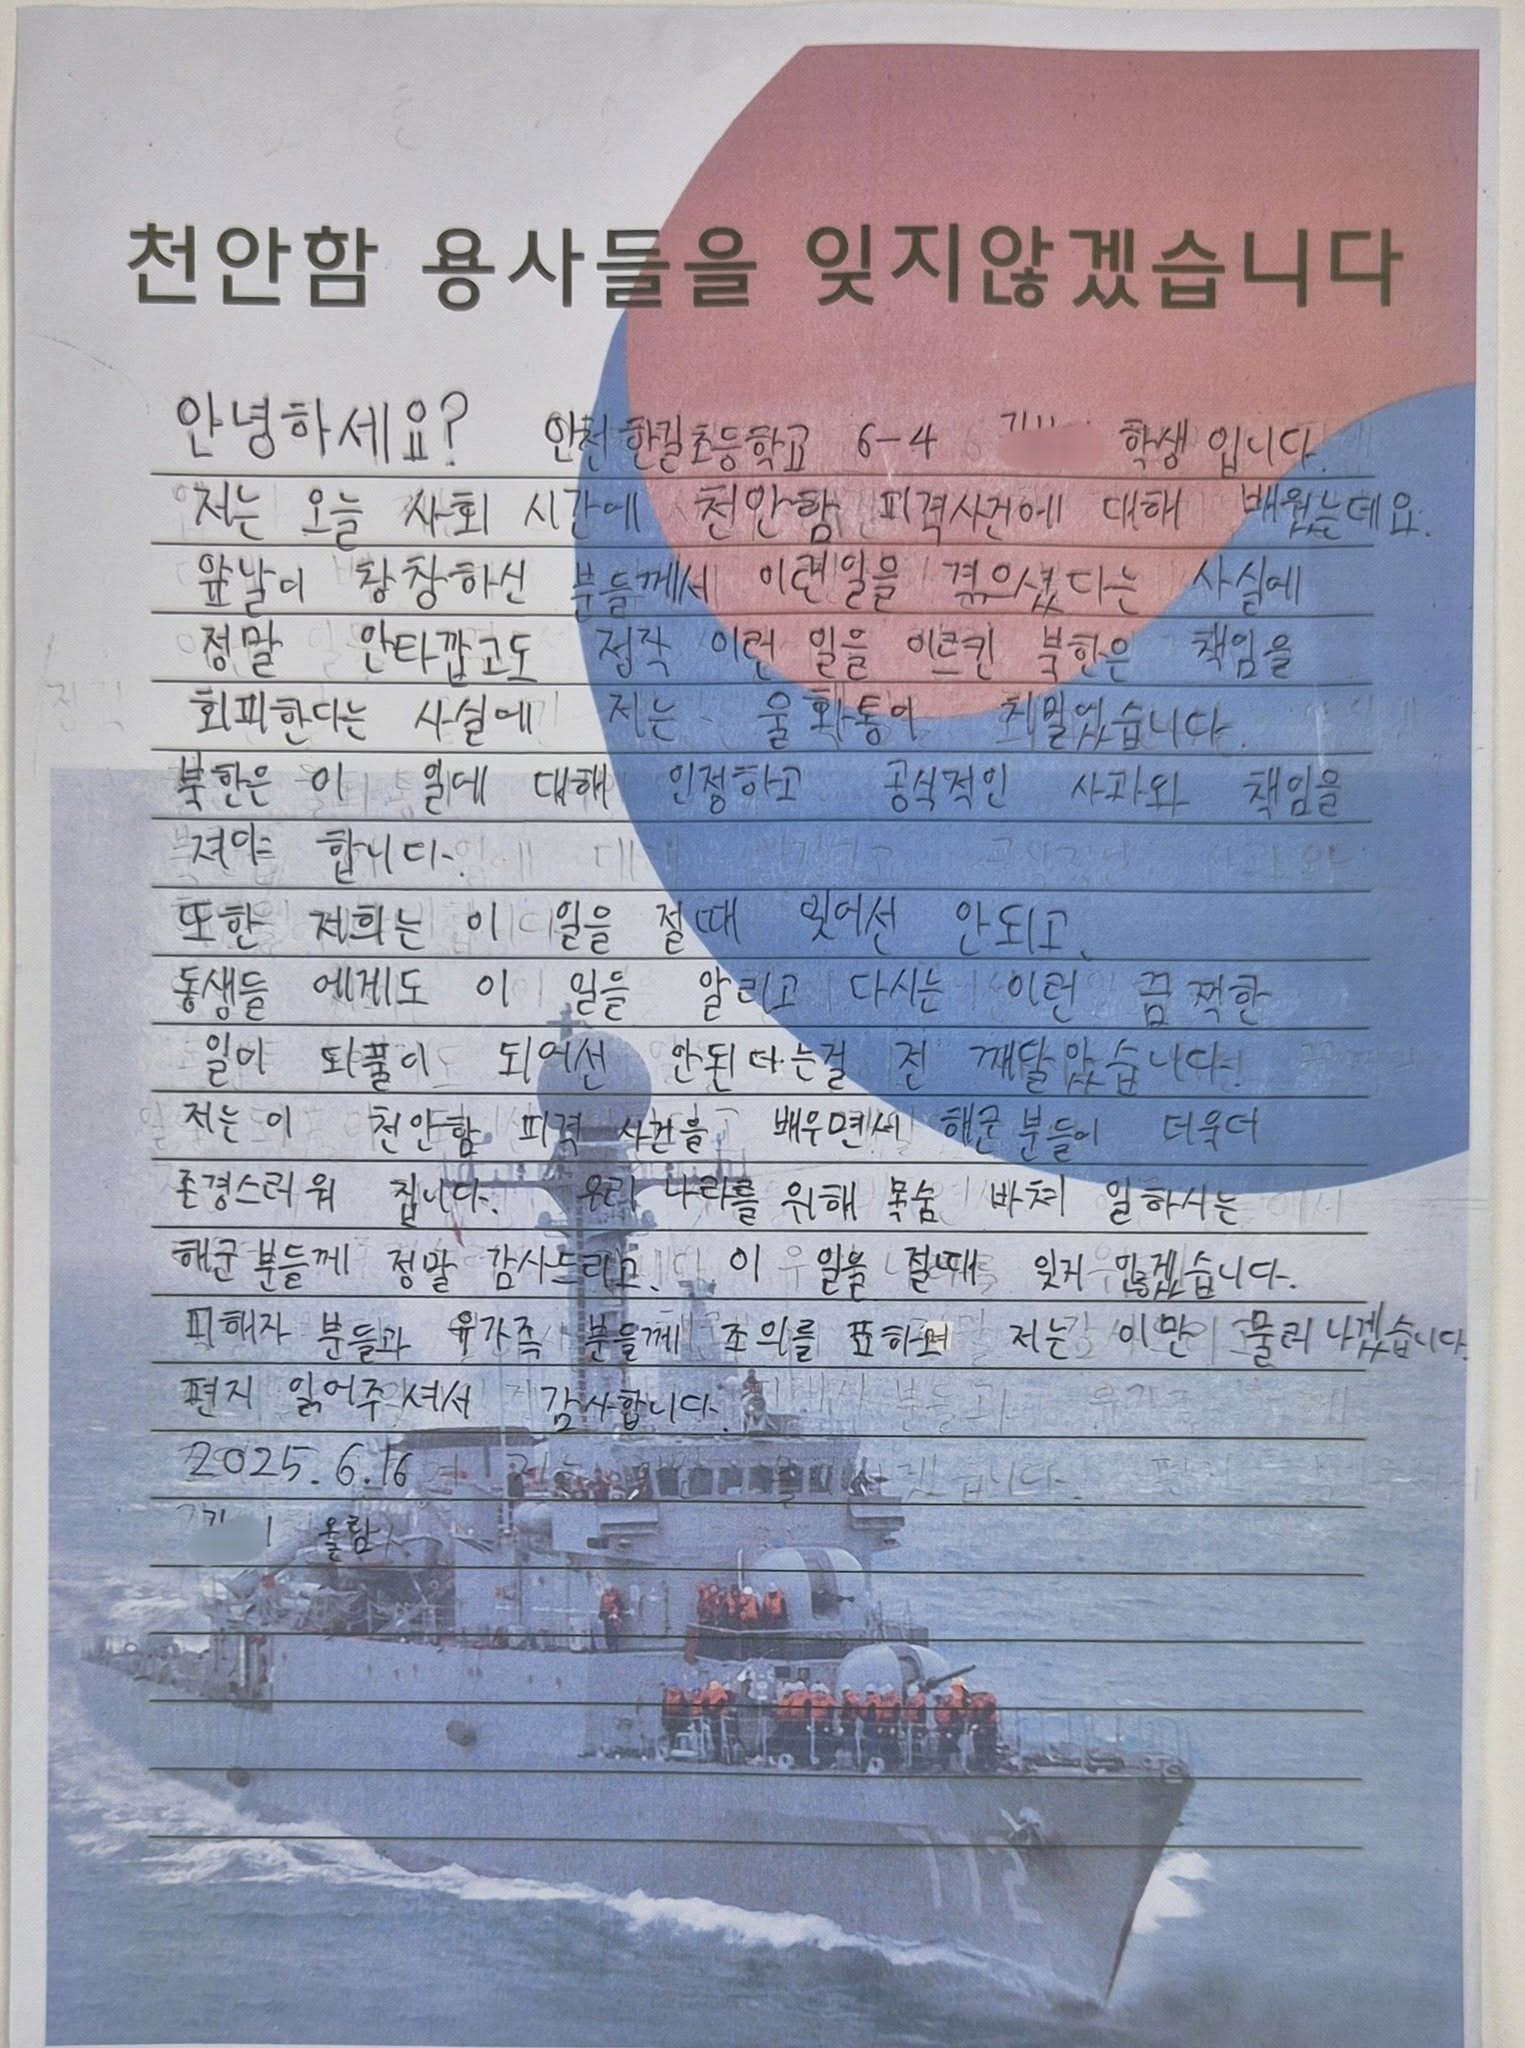 천안함 용사들을 잊지않겠습니다
안녕하세요? 인천한길초등학교 6-4 학생입니다.
저는 오늘 사회 시간에 천안함 피격사건에 대해 배웠는데요.
앞날이 창창하신 분들께서 이런일을 겪으셨다는 사실에
정말 안타깝고도 정작 이런 일을 일으킨 북한은 책임을
회피한다는 사실에 저는 울화통이 치밀었습니다.
북한은 이 일에 대해 인정하고 공식적인 사과와 책임을
져야 합니다.
또한 저희는 이 일을 절때 잊어선 안되고,
동생들 에게도 이 일을 알리고 다시는 이런 끔찍한
일이 되풀이 되어선 안된다는걸 전 깨달았습니다.
저는 이 천안함 피격 사건을 배우면서 해군분들이 더욱더
존경스러워 집니다. 우리 나라를 위해 목숨 바쳐 일하시는
해군분들께 정말 감사드리고, 이 일을 절때 잊지 않겠습니다.
피해자 분들과 유가족 분들께 조의를 표하며 저는 이만 물러나겠습니다.
편지 읽어주셔서 감사합니다.
2025.6.16
올림
772